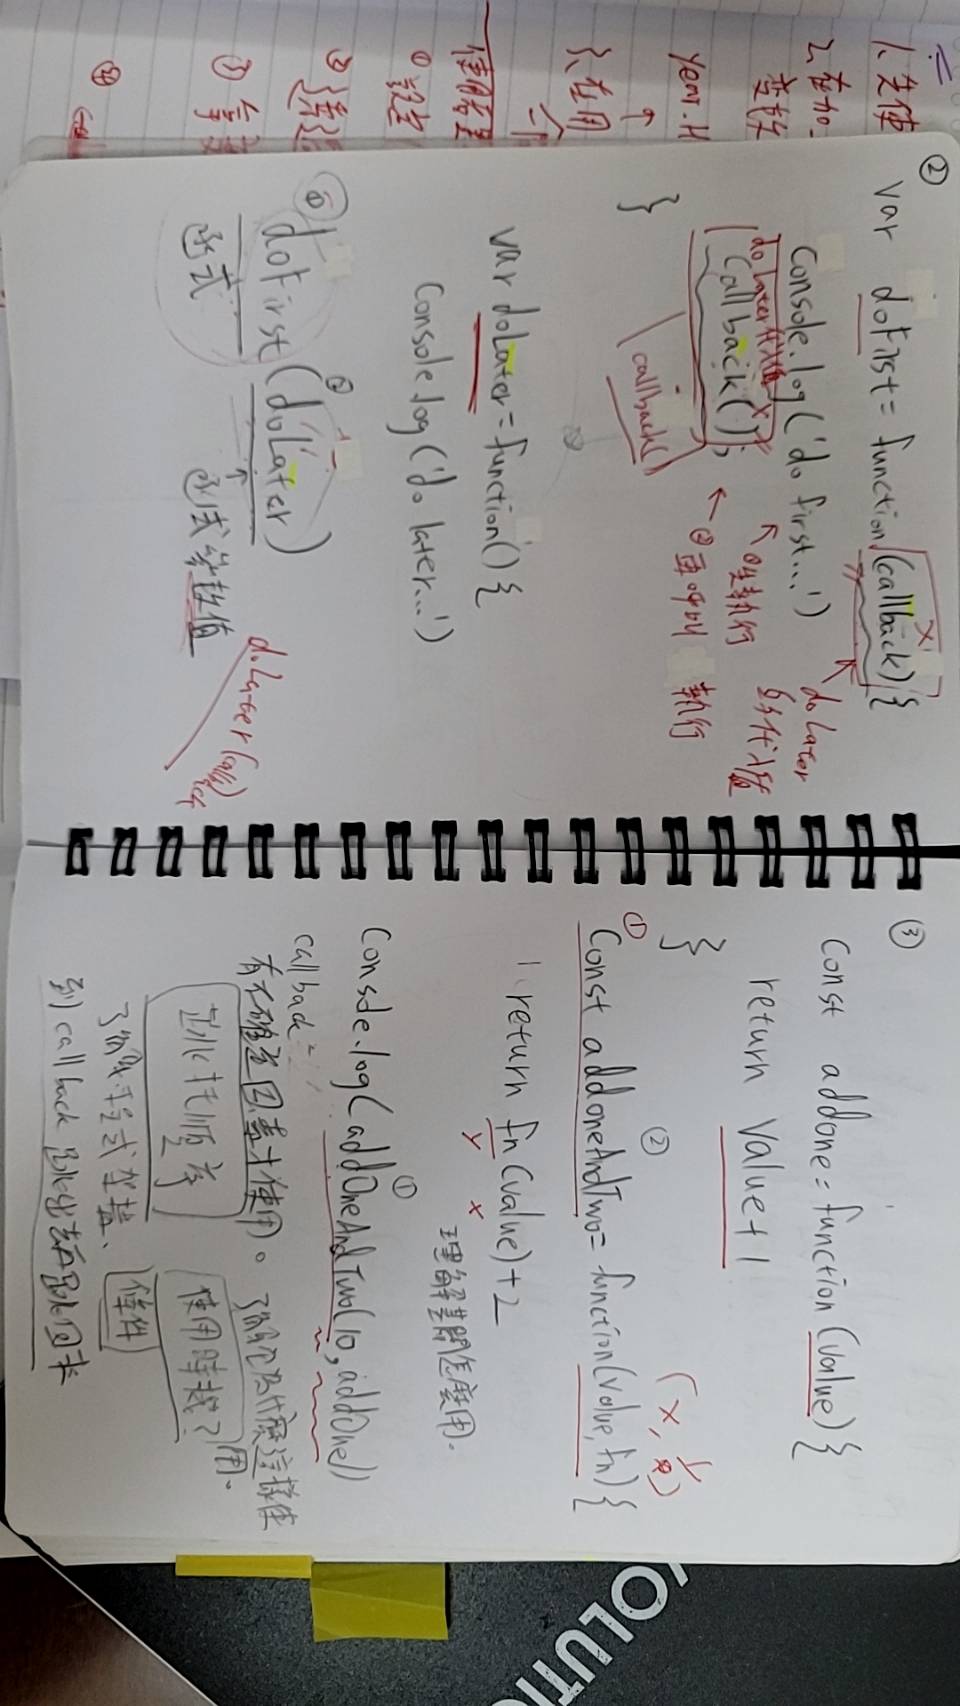 1、先使
2、在加
变数
year.H
↑
3、在用
一个
①設定
②
③
④
②
var doFirst = function (callback) {
x
console.log('do first...')
doLater
①先執行
doLater代入值 x
callback();
②再呼叫 執行
callback()
}
var doLater = function () {
Console.log('do later...')
① ②
doFirst (doLater)
函式
函式參數值
doLater (callback
③
Const addone = function (value) {
return value + 1
}
(x, y)
① ②
Const addoneAndTwo = function (value, fn) {
return fn (value) + 2
y x
理解基間怎麼用。
①
Console.log(addOneAndTwo(10, addOne))
callback
有不確定因素才使用。
了解它為什麼這樣使用。
使用時機?
條件
到 callback 跳出去再跳回來
VOLUTIO